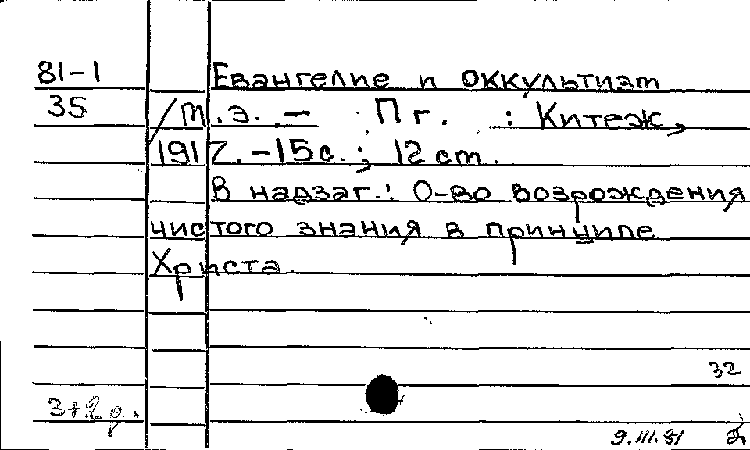 81-1 Евангелие и оккультизм
35 /т.э. – Пг. : Китеж,
1917. – 15 с. ; 12 cm.
В надзаг.: О-во возрождения
чистого знания в принципе
Христа.
32
9.III.81